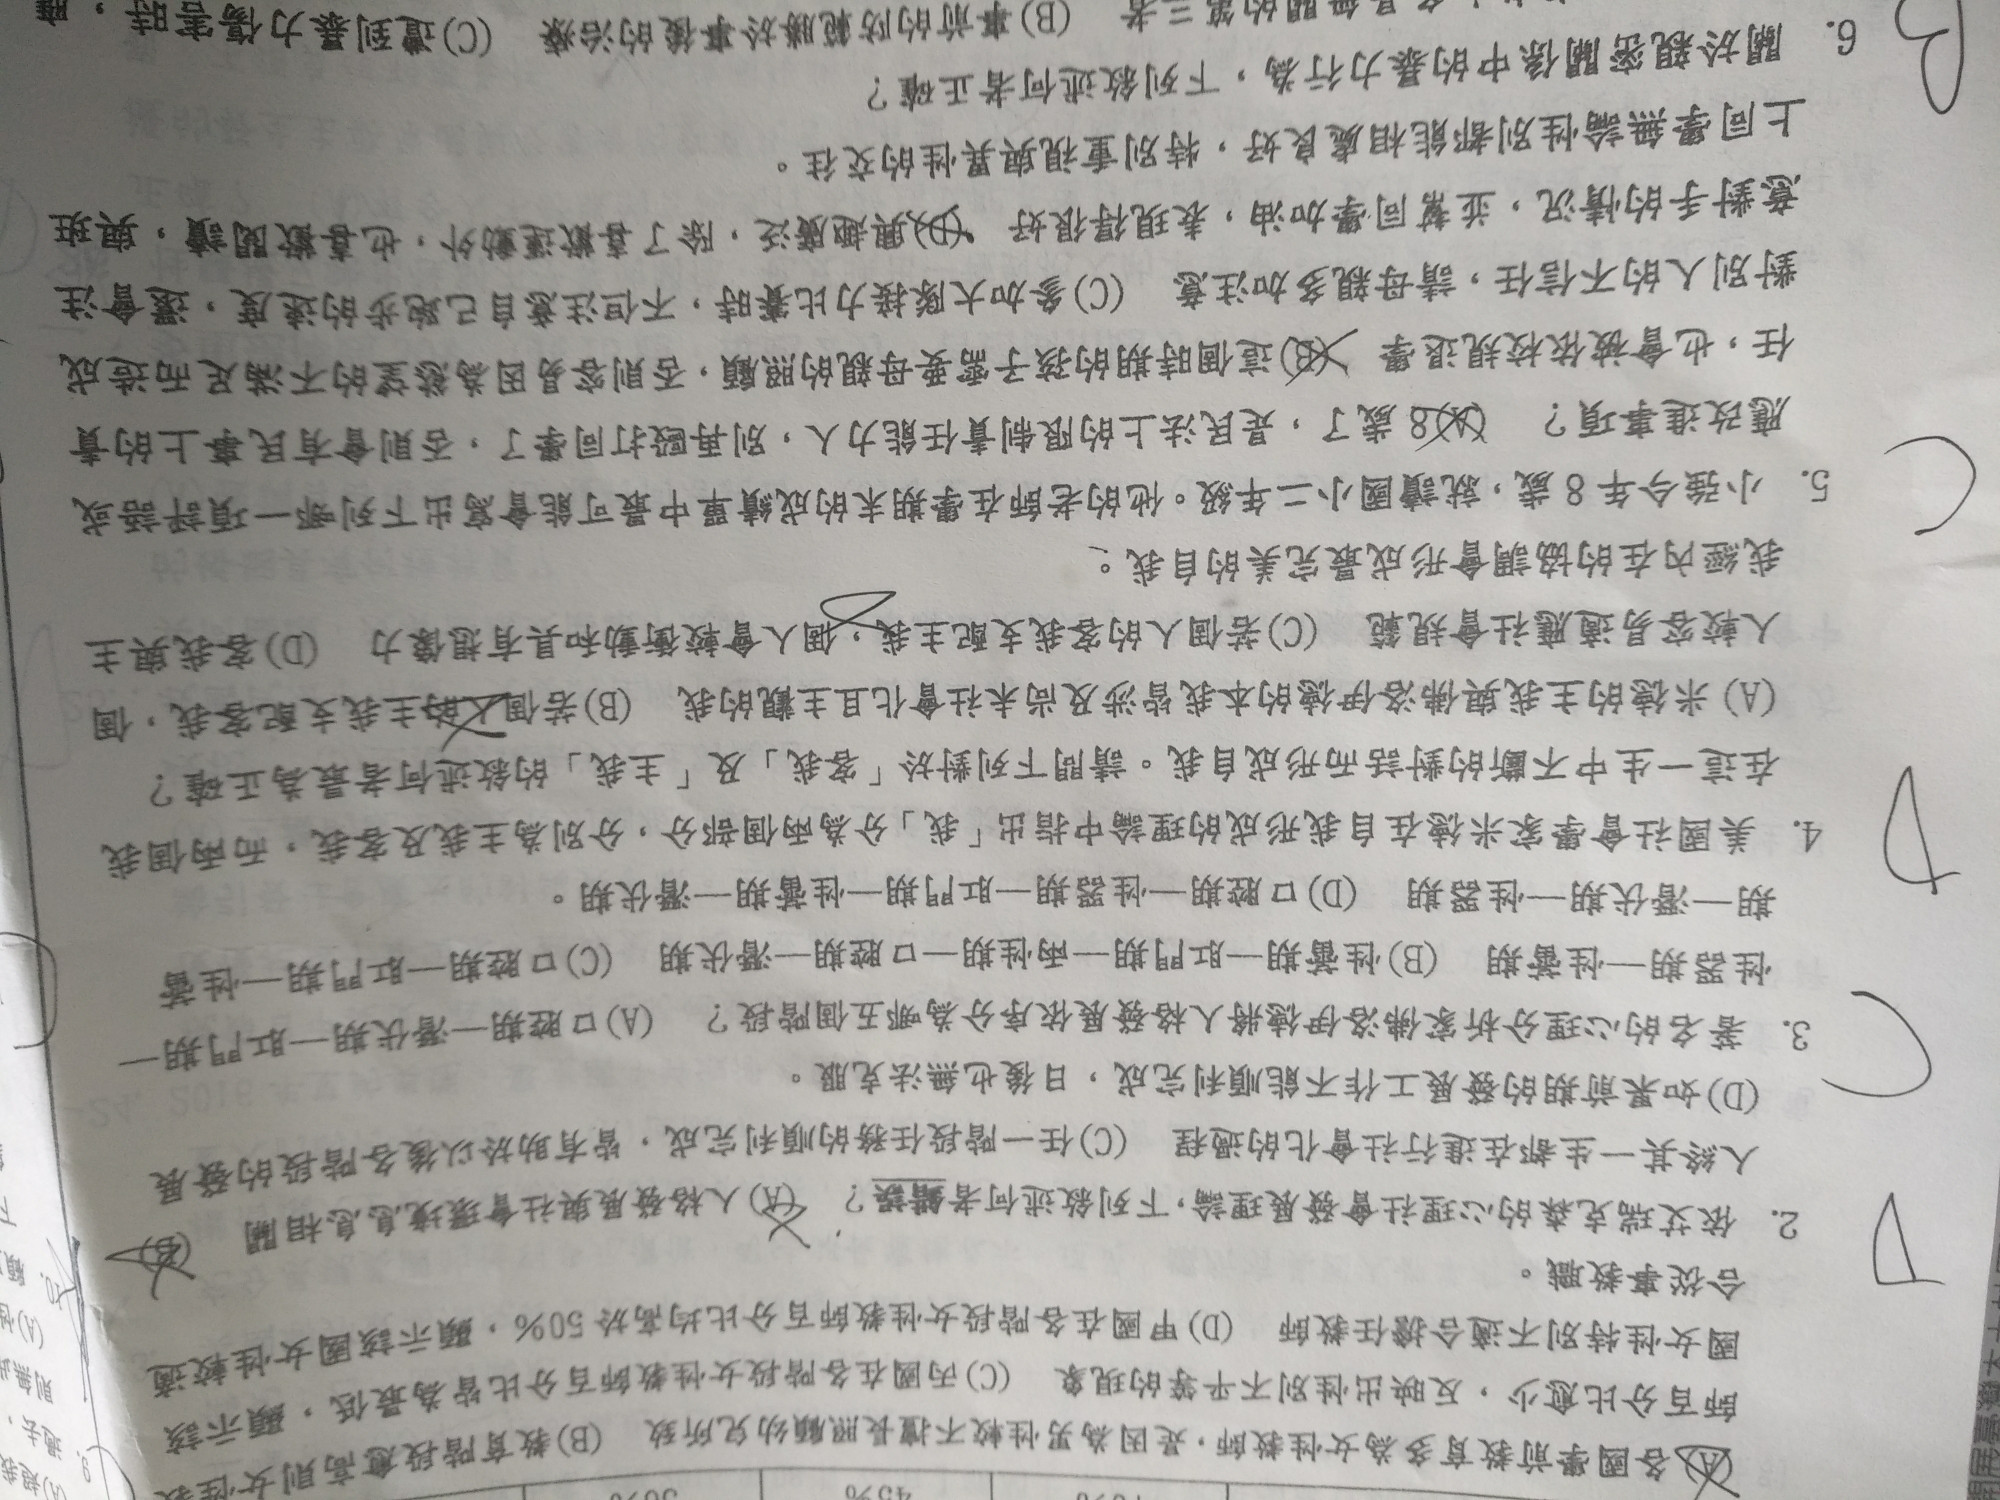 50% 45% 40%
(A)各國學前教育多為女性教師,是因為男性較不擅長照顧幼兒所致 (B)教育階段愈高則女性教
師百分比愈少,反映出性別不平等的現象 (C)丙國在各階段女性教師百分比皆為最低,顯示該
國女性特別不適合擔任教師 (D)甲國在各階段女性教師百分比均高於50%,顯示該國女性較適
合從事教職。
D
2. 依艾瑞克森的心理社會發展理論,下列敘述何者錯誤? (A)人格發展與社會環境息息相關 (B)
人終其一生都在進行社會化的過程 (C)任一階段任務的順利完成,皆有助於以後各階段的發展
(D)如果前期的發展工作不能順利完成,日後也無法克服。
C
3. 著名的心理分析家佛洛伊德將人格發展依序分為哪五個階段? (A)口腔期—潛伏期—肛門期—
性器期—性蕾期 (B)性蕾期—肛門期—兩性期—口腔期—潛伏期 (C)口腔期—肛門期—性蕾
期—潛伏期—性器期 (D)口腔期—性器期—肛門期—性蕾期—潛伏期。
D
4. 美國社會學家米德在自我形成的理論中指出「我」分為兩個部分,分別為主我及客我,而兩個我
在這一生中不斷的對話而形成自我。請問下列對於「客我」及「主我」的敘述何者最為正確?
(A)米德的主我與佛洛伊德的本我皆涉及尚未社會化且主觀的我 (B)若個人的主我支配客我,個
人較容易適應社會規範 (C)若個人的客我支配主我,個人會較衝動和具有想像力 (D)客我與主
我經內在的協調會形成最完美的自我。
C
5. 小強今年8歲,就讀國小二年級。他的老師在學期末的成績單中最可能會寫出下列哪一項評語或
應改進事項? (A)8歲了,是民法上的限制責任能力人,別再毆打同學了,否則會有民事上的責
任,也會被依校規退學 (B)這個時期的孩子需要母親的照顧,否則容易因為慾望的不滿足而造成
對別人的不信任,請母親多加注意 (C)參加大隊接力比賽時,不但注意自己跑步的速度,還會注
意對手的情況,並幫同學加油,表現得很好 (D)興趣廣泛,除了喜歡運動外,也喜歡閱讀,與班
上同學無論性別都能相處良好,特別重視與異性的交往。
B
6. 關於親密關係中的暴力行為,下列敘述何者正確?
(B)事前的防範勝於事後的治療 (C)遭到暴力傷害時,
9.
(A)
10.